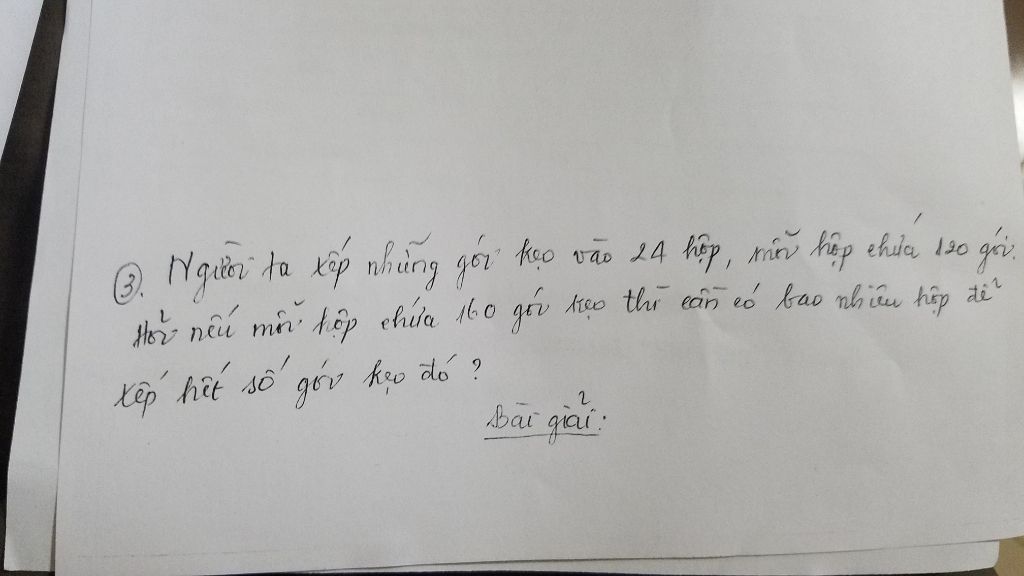 ③. Người ta xếp những gói kẹo vào 24 hộp, mỗi hộp chứa 120 gói.
Hỏi nếu mỗi hộp chứa 160 gói kẹo thì cần có bao nhiêu hộp để
xếp hết số gói kẹo đó ?
Bài giải: